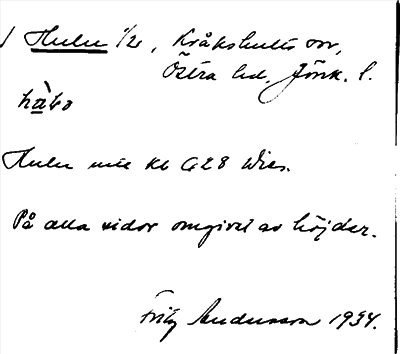 Hulu 1/2, Kråkshults sn,
Östra hd. Jönk. l.
Hulu
På alla sidor omgivet av höjder.
Fritz Andersson 1934.